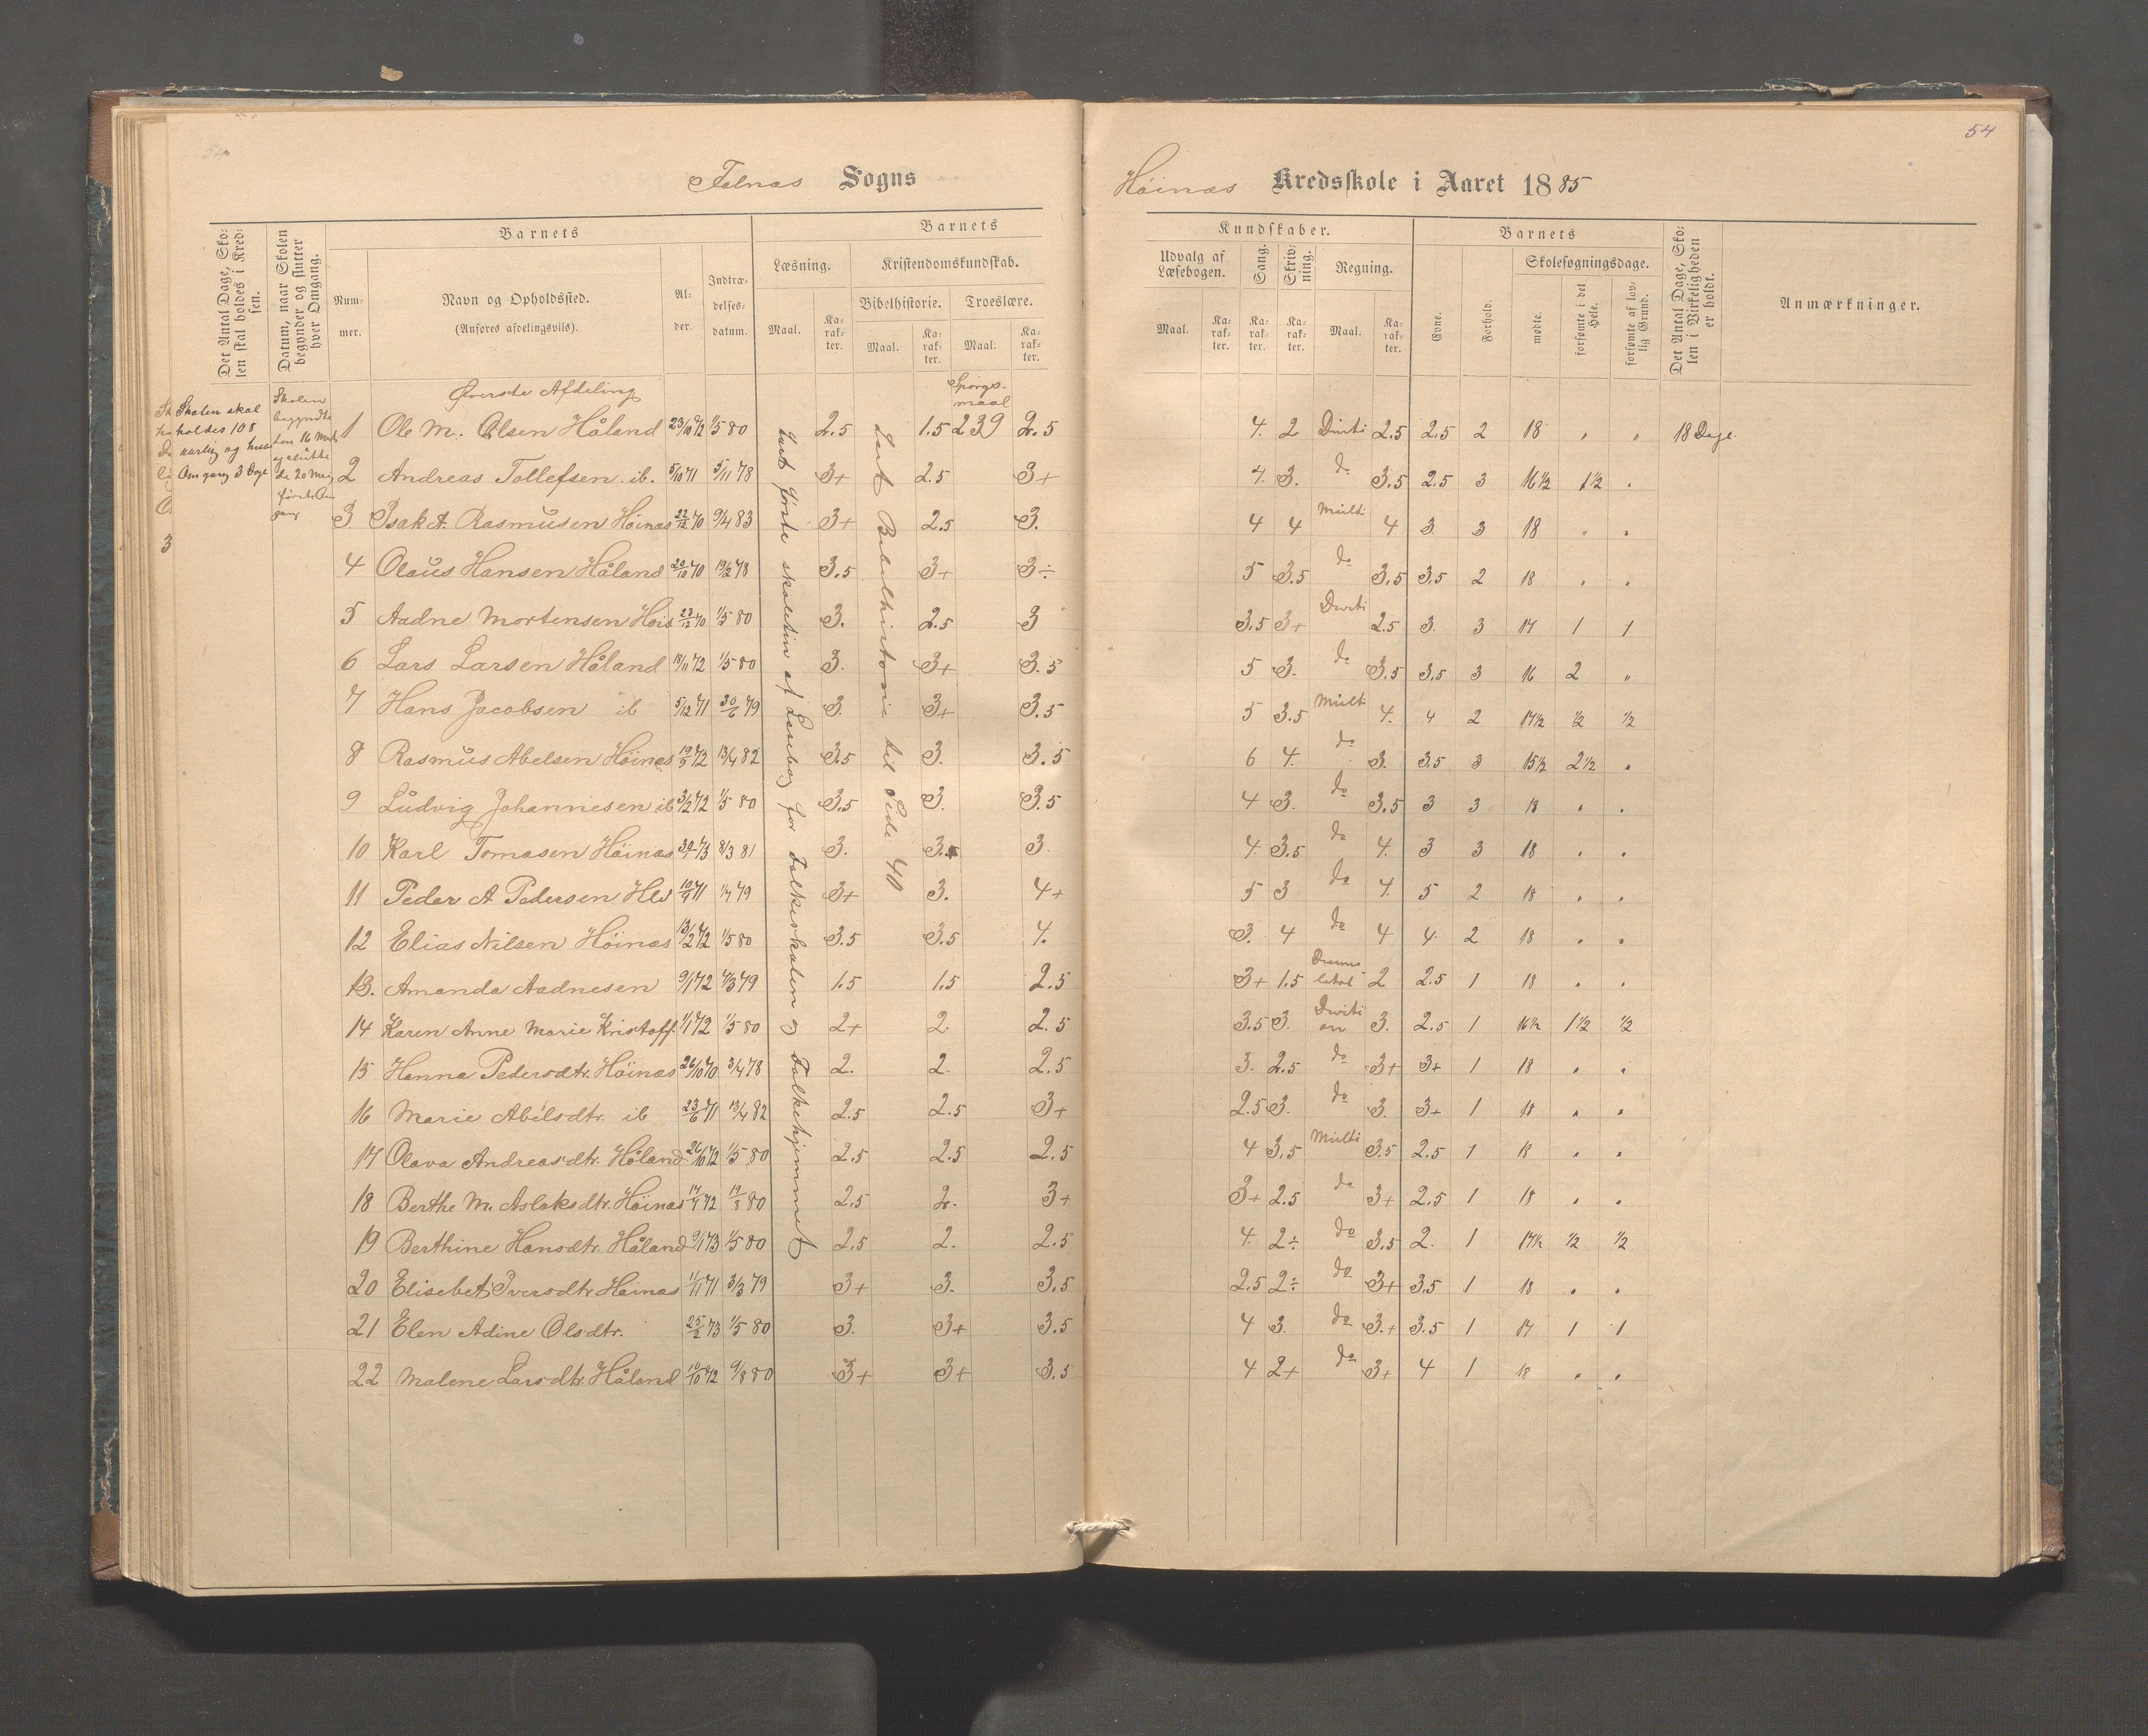 54
Falnæs Sogns
Høinæs Kredsskole i Aaret 1885
Det Antal Dage, Skolen skal holdes i Kredsen.
Datum, naar Skolen begynder og slutter hver Omgang.
Barnets
Nummer.
Navn og Opholdssted.
(Anføres afdelingsviis).
Alder.
Indtrædelsesdatum.
Barnets
Læsning.
Maal.
Karakter.
Kristendomskundskab.
Bibelhistorie.
Maal.
Karakter.
Troeslære.
Maal.
Karakter.
Kundskaber.
Udvalg af Læsebogen.
Maal.
Karakter.
Sang.
Karakter.
Skrivning.
Karakter.
Regning.
Maal.
Karakter.
Barnets
Evne.
Forhold.
Skolesøgningsdage.
mødte.
forsømte i det Hele.
forsømte af lovlig Grund.
Det Antal Dage, Skolen i Virkeligheden er holdt.
Anmærkninger.
Skolen skal
holdes 108
aarlig og hver
Omgang 3 Dage
Skolen
begyndte
den 16 Marts
og slutte
de 20 Mai
første Om
gang
Øverste Afdeling
Spørgsmaal
læst første skoletrin af Læsebog for Folkeskolen og Folkehjemmet
læst Bibelhistorie til Side 40
1 Ole M. Olsen Håland 23/10 72 1/5 80 2.5 1.5 239 2.5 4. 2 Diviti 2.5 2.5 2 18 " " 18 Dage
2 Andreas Tollefsen ib. 5/10 71 5/11 78 3+ 2.5 3+ 4. 3. do 3.5 2.5 3 16 1/2 1 1/2 "
3. Isak A. Rasmusen Høinæs 22/12 70 9/4 83 3+ 2.5 3. 4 4 Multi 4 3. 3 18 " "
4 Olaus Hansen Håland 20/10 70 19/2 78 3.5 3+ 3÷ 5 3.5 do 3.5 3.5 2 18 " "
5 Aadne Mortensen Høis 23/12 70 1/5 80 3. 2.5 3 3.5 3+ Diviti 2.5 3. 3 17 1 1
6 Lars Larsen Håland 18/11 72 1/5 80 3. 3+ 3.5 5 3. do 3.5 3.5 3 16 2 "
7 Hans Jacobsen ib 5/12 71 30/6 79 3. 3+ 3.5 5 3.5 Multi 4. 4 2 17 1/2 1/2 1/2
8 Rasmus Abelsen Høinæs 19/5 72 13/4 82 3.5 3. 3.5 6 4. do 3. 3.5 3 15 1/2 2 1/2 "
9 Ludvig Johannesen ib 3/2 72 1/5 80 3.5 3. 3.5 4 3. do 3.5 3 3 18 " "
10 Karl Tomasen Høinæs 30/1 73 8/3 81 3. 3.+ 3 4. 3.5 do 4. 3 3 18 " "
11 Peder A Pedersen Hld 10/9 71 1/7 79 3+ 3. 4+ 5 3 do 4. 5 2 18 " "
12 Elias Nilsen Høinæs 13/2 72 1/5 80 3.5 3.5 4. 3. 4 do 4 4. 2 18 " "
13. Amanda Aadnesen 9/1 72 4/3 79 1.5 1.5 2.5 3+ 1.5 2 2.5 1 18 " "
14 Karen Anne Marie Kristoff. 1/1 72 1/5 80 2+ 2. 2.5 3.5 3. Division 3. 2.5 1 16 1/2 1 1/2 1/2
15 Hanna Pedersdtr. Høinæs 26/10 70 3/4 78 2. 2. 2.5 3. 2.5 do 3+ 3+ 1 18 " "
16 Marie Abelsdtr. ib 23/6 71 13/4 82 2.5 2.5 3+ 2.5 3. do 3. 3+ 1 18 " "
17 Olava Andreasdtr. Håland 26/10 72 1/5 80 2.5 2.5 2.5 4 3.5 Multi 3.5 2.5 1 18 " "
18 Berthe M. Aslaksdtr. Høinæs 14/4 72 19/8 80 2.5 2. 3+ 3+ 2.5 do 3+ 2.5 1 18 " "
19 Berthine Hansdtr. Håland 9/1 73 1/5 80 2.5 2. 2.5 4. 2÷ do 3.5 2. 1 17 1/2 1/2 1/2
20 Elisebet Iversdtr Høinæs 1/11 71 3/3 79 3+ 3. 3.5 2.5 2÷ do 3+ 3.5 1 18 " "
21 Elen Adine Olsdtr. 25/2 73 1/5 80 3. 3+ 3.5 4 3. do 3.+ 3.5 1 17 1 1
22 Malene Larsdtr. Håland 10/10 72 9/8 80 3+ 3+ 3.5 4 2+ do 3+ 4 1 18 " "